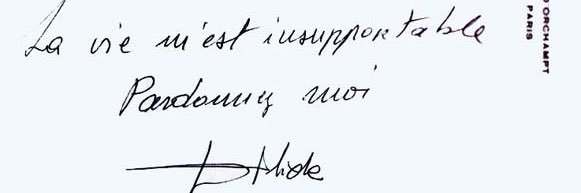 La vie m'est insupportable
Pardonnez moi
Dalida
D'ORCHAMPT
PARIS